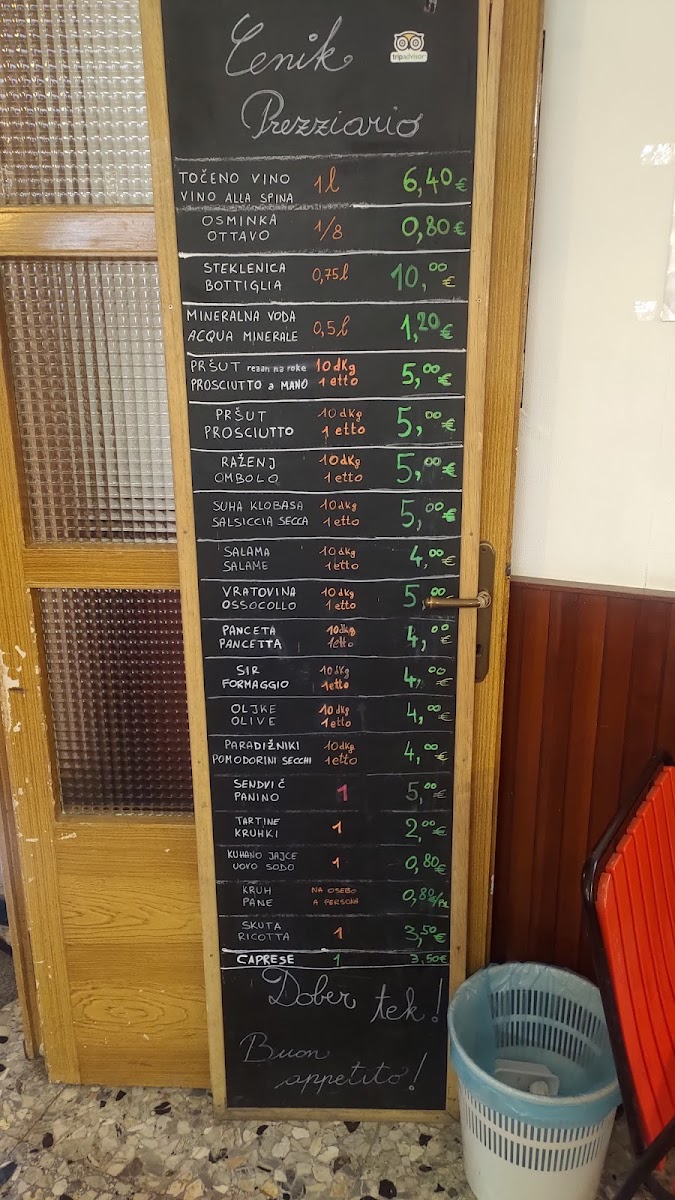 Cenik
tripadvisor
Prezziario
TOČENO VINO 1l 6,40€
VINO ALLA SPINA
OSMINKA 1/8 0,80€
OTTAVO
STEKLENICA 0,75l 10,00€
BOTTIGLIA
MINERALNA VODA 0,5l 1,20€
ACQUA MINERALE
PRŠUT rezan na roke 10dkg 5,00€
PROSCIUTTO a MANO 1etto
PRŠUT 10dkg 5,00€
PROSCIUTTO 1etto
RAŽENJ 10dkg 5,00€
OMBOLO 1etto
SUHA KLOBASA 10dkg 5,00€
SALSICCIA SECCA 1etto
SALAMA 10dkg 4,00€
SALAME 1etto
VRATOVINA 10dkg 5,00€
OSSOCOLLO 1etto
PANCETA 10dkg 4,00€
PANCETTA 1etto
SIR 10dkg 4,00€
FORMAGGIO 1etto
OLJKE 10dkg 4,00€
OLIVE 1etto
PARADIŽNIKI 10dkg 4,00€
POMODORINI SECCHI 1etto
SENDVIČ 1 5,00€
PANINO
TARTINE 1 2,00€
KRUHKI
KUHANO JAJCE 1 0,80€
UOVO SODO
KRUH NA OSEBO 0,80€/
PANE A PERSONA
SKUTA 1 3,50€
RICOTTA
CAPRESE 1 3,50€
Dober tek!
Buon
appetito!